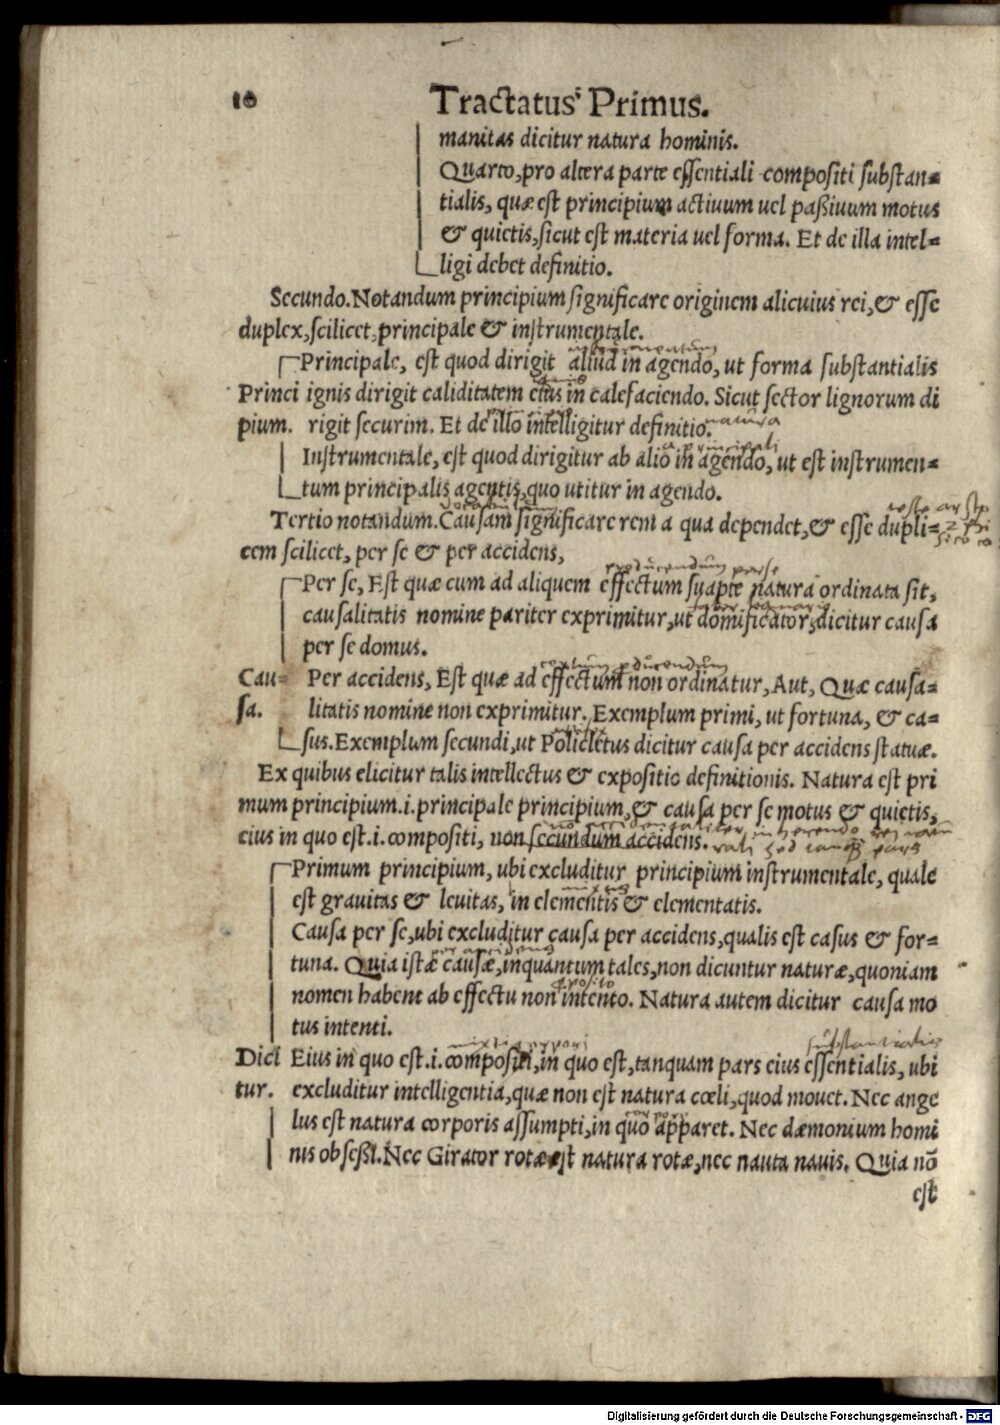 10 Tractatus Primus.
manitas dicitur natura hominis.
Quarto, pro altera parte essentiali compositi substan=
tialis, quæ est principium activum vel paßivum motus
& quietis, sicut est materia vel forma. Et de illa intel=
ligi debet definitio.
Secundo. Notandum principium significare originem alicuius rei, & esse
duplex, scilicet, principale & instrumentale.
Principale, est quod dirigit aliud in agendo, ut forma substantialis
Princi ignis dirigit caliditatem eius in calefaciendo. Sicut sector lignorum di
pium. rigit securim. Et de illo intelligitur definitio. natura
principali
Instrumentale, est quod dirigitur ab alio in agendo, ut est instrumen=
tum principalis agentis, quo utitur in agendo.
Tertio notandum. Causam significare rem a qua dependet, & esse dupli=
cem scilicet, per se & per accidens,
producendum per se
Per se, Est quæ cum ad aliquem effectum suapte natura ordinata sit,
causalitatis nomine pariter exprimitur, ut domificator, dicitur causa
per se domus.
Cau= Per accidens, Est quæ ad effectum non ordinatur, Aut, Quæ causa=
sa. litatis nomine non exprimitur. Exemplum primi, ut fortuna, & ca=
sus. Exemplum secundi, ut Policletus dicitur causa per accidens statuæ.
Ex quibus elicitur talis intellectus & expositio definitionis. Natura est pri
mum principium .i. principale principium, & causa per se motus & quietis,
eius in quo est .i. compositi, non secundum accidens.
Primum principium, ubi excluditur principium instrumentale, quale
est gravitas & levitas, in elementis & elementatis.
Causa per se, ubi excluditur causa per accidens, qualis est casus & for=
tuna. Quia istæ causæ, inquantum tales, non dicuntur naturæ, quoniam
nomen habent ab effectu non intento. Natura autem dicitur causa mo
tus intenti.
substantialis
Dici Eius in quo est .i. compositi, in quo est, tanquam pars eius essentialis, ubi
tur. excluditur intelligentia, quæ non est natura cœli, quod movet. Nec ange
lus est natura corporis assumpti, in quo apparet. Nec dæmonium homi
nis obseßi. Nec Girator rotæ est natura rotæ, nec nauta navis. Quia nõ
est
Digitalisierung gefördert durch die Deutsche Forschungsgemeinschaft - DFG